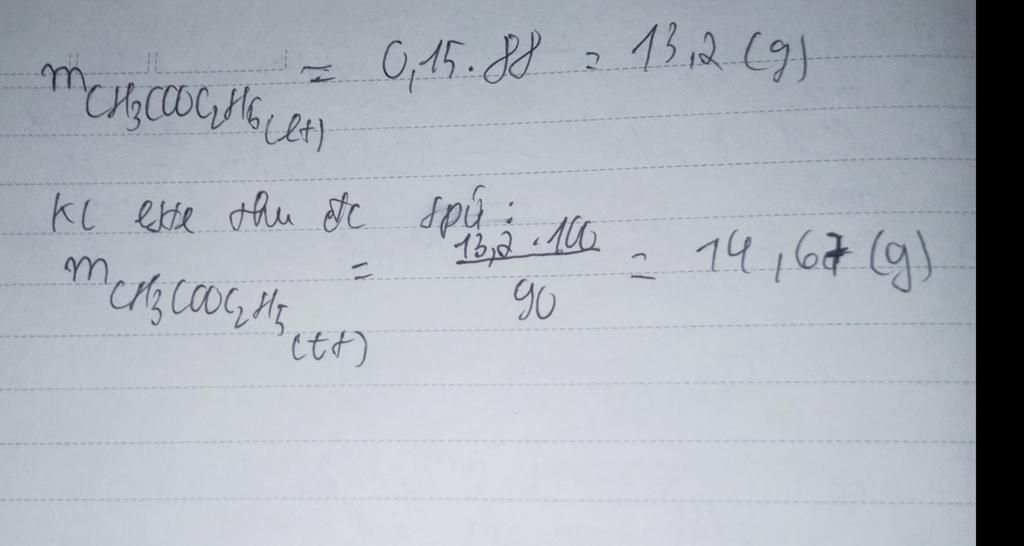 mCH3COOC2H5(lt) = 0,15.88 = 13,2 (g)
KL este thu đc spứ :
mCH3COOC2H5(tt) = 13,2.100/90 = 14,67 (g)